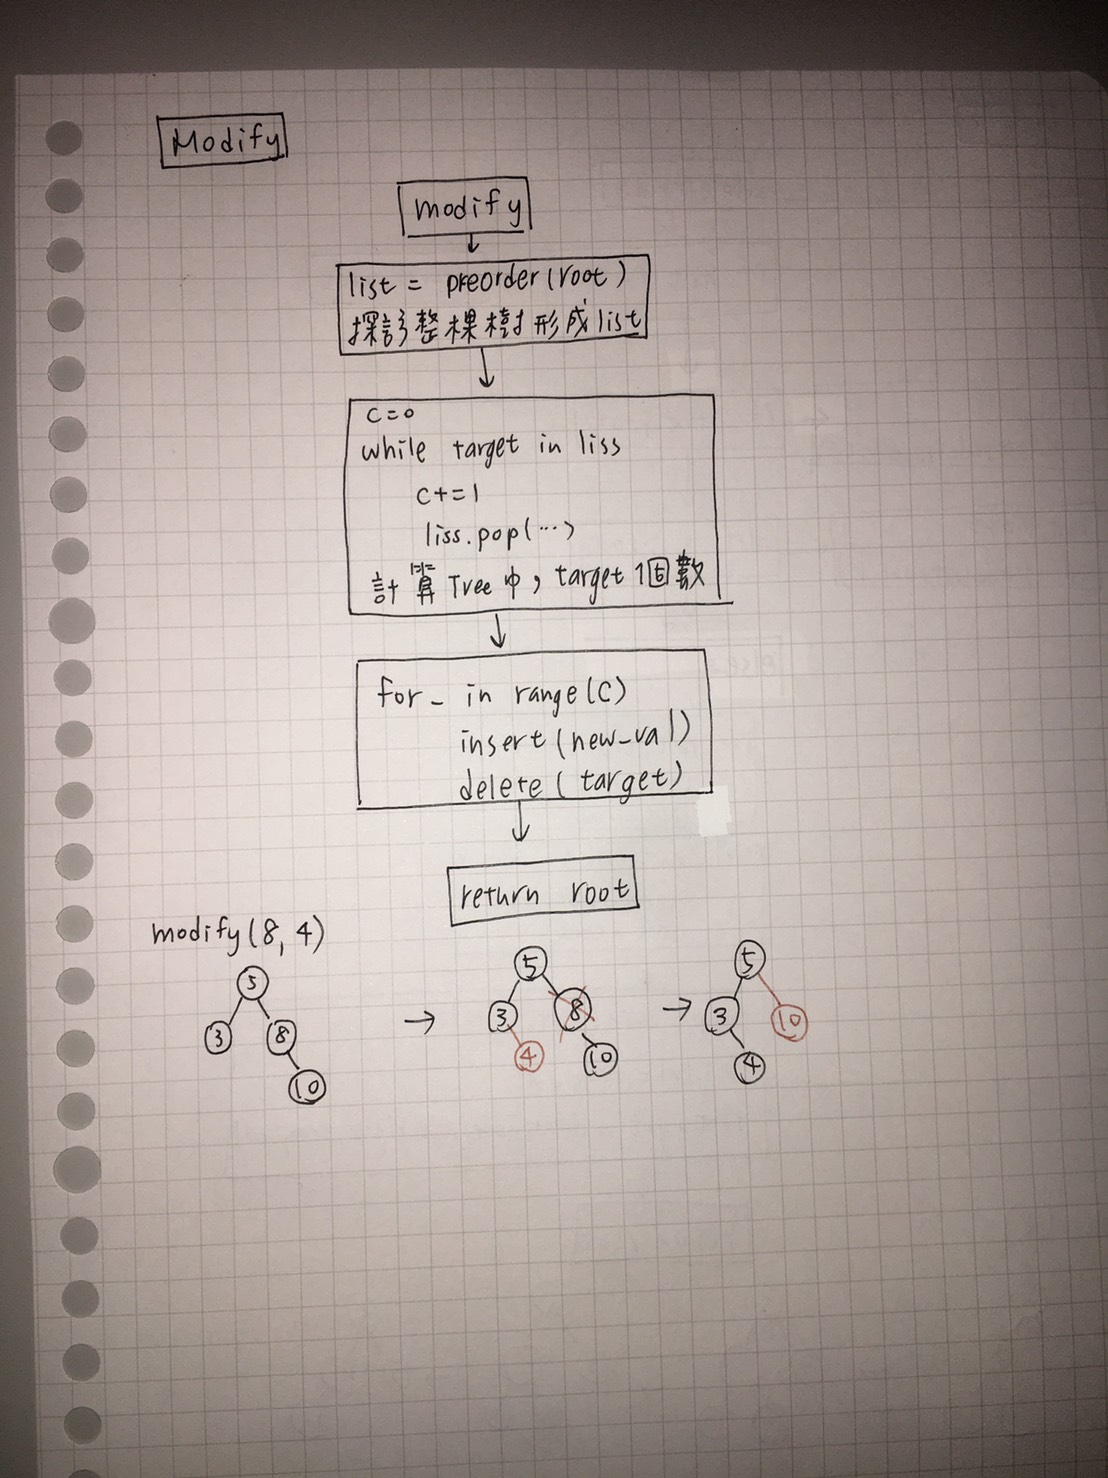 Modify
modify
list = preorder(root)
探訪整棵樹形成list
c=0
while target in liss
c+=1
liss.pop(...)
計算Tree中,target個數
for _ in range(c)
insert(new_val)
delete(target)
return root
modify(8,4)
5
3 8
10
→
5
3 8
4 10
→
5
3 10
4